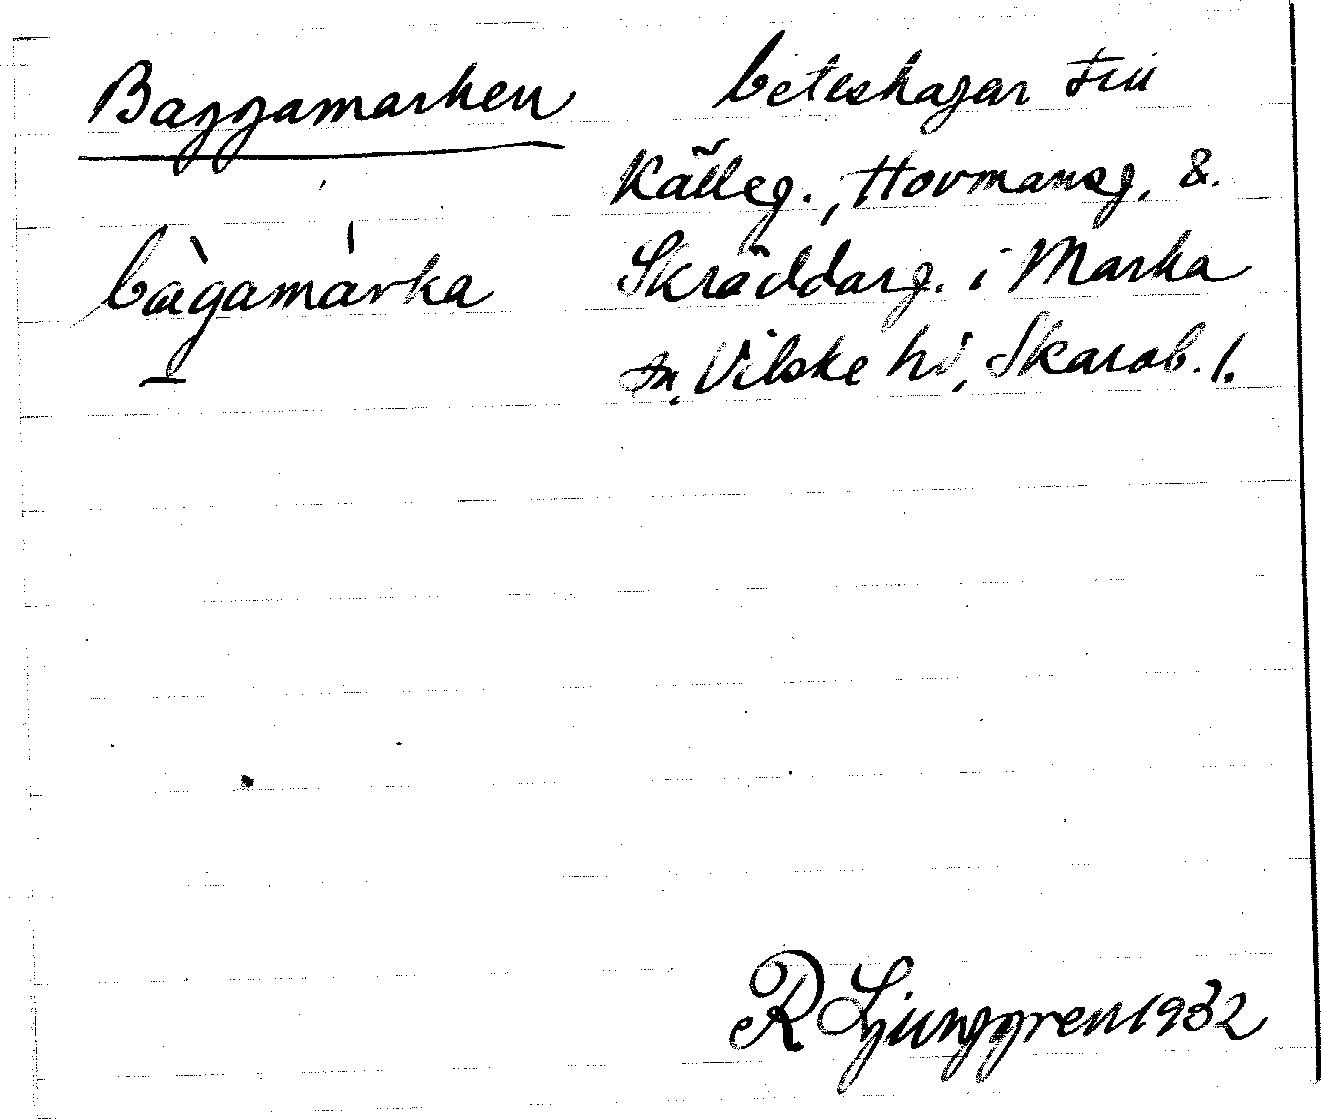 Baggamarken
bàgamárka
beteshagar till
Källeg., Hovmansg. &
Skräddarg. i Marka
sn, Vilske hd, Skarab. l.
R Ljunggren 1932